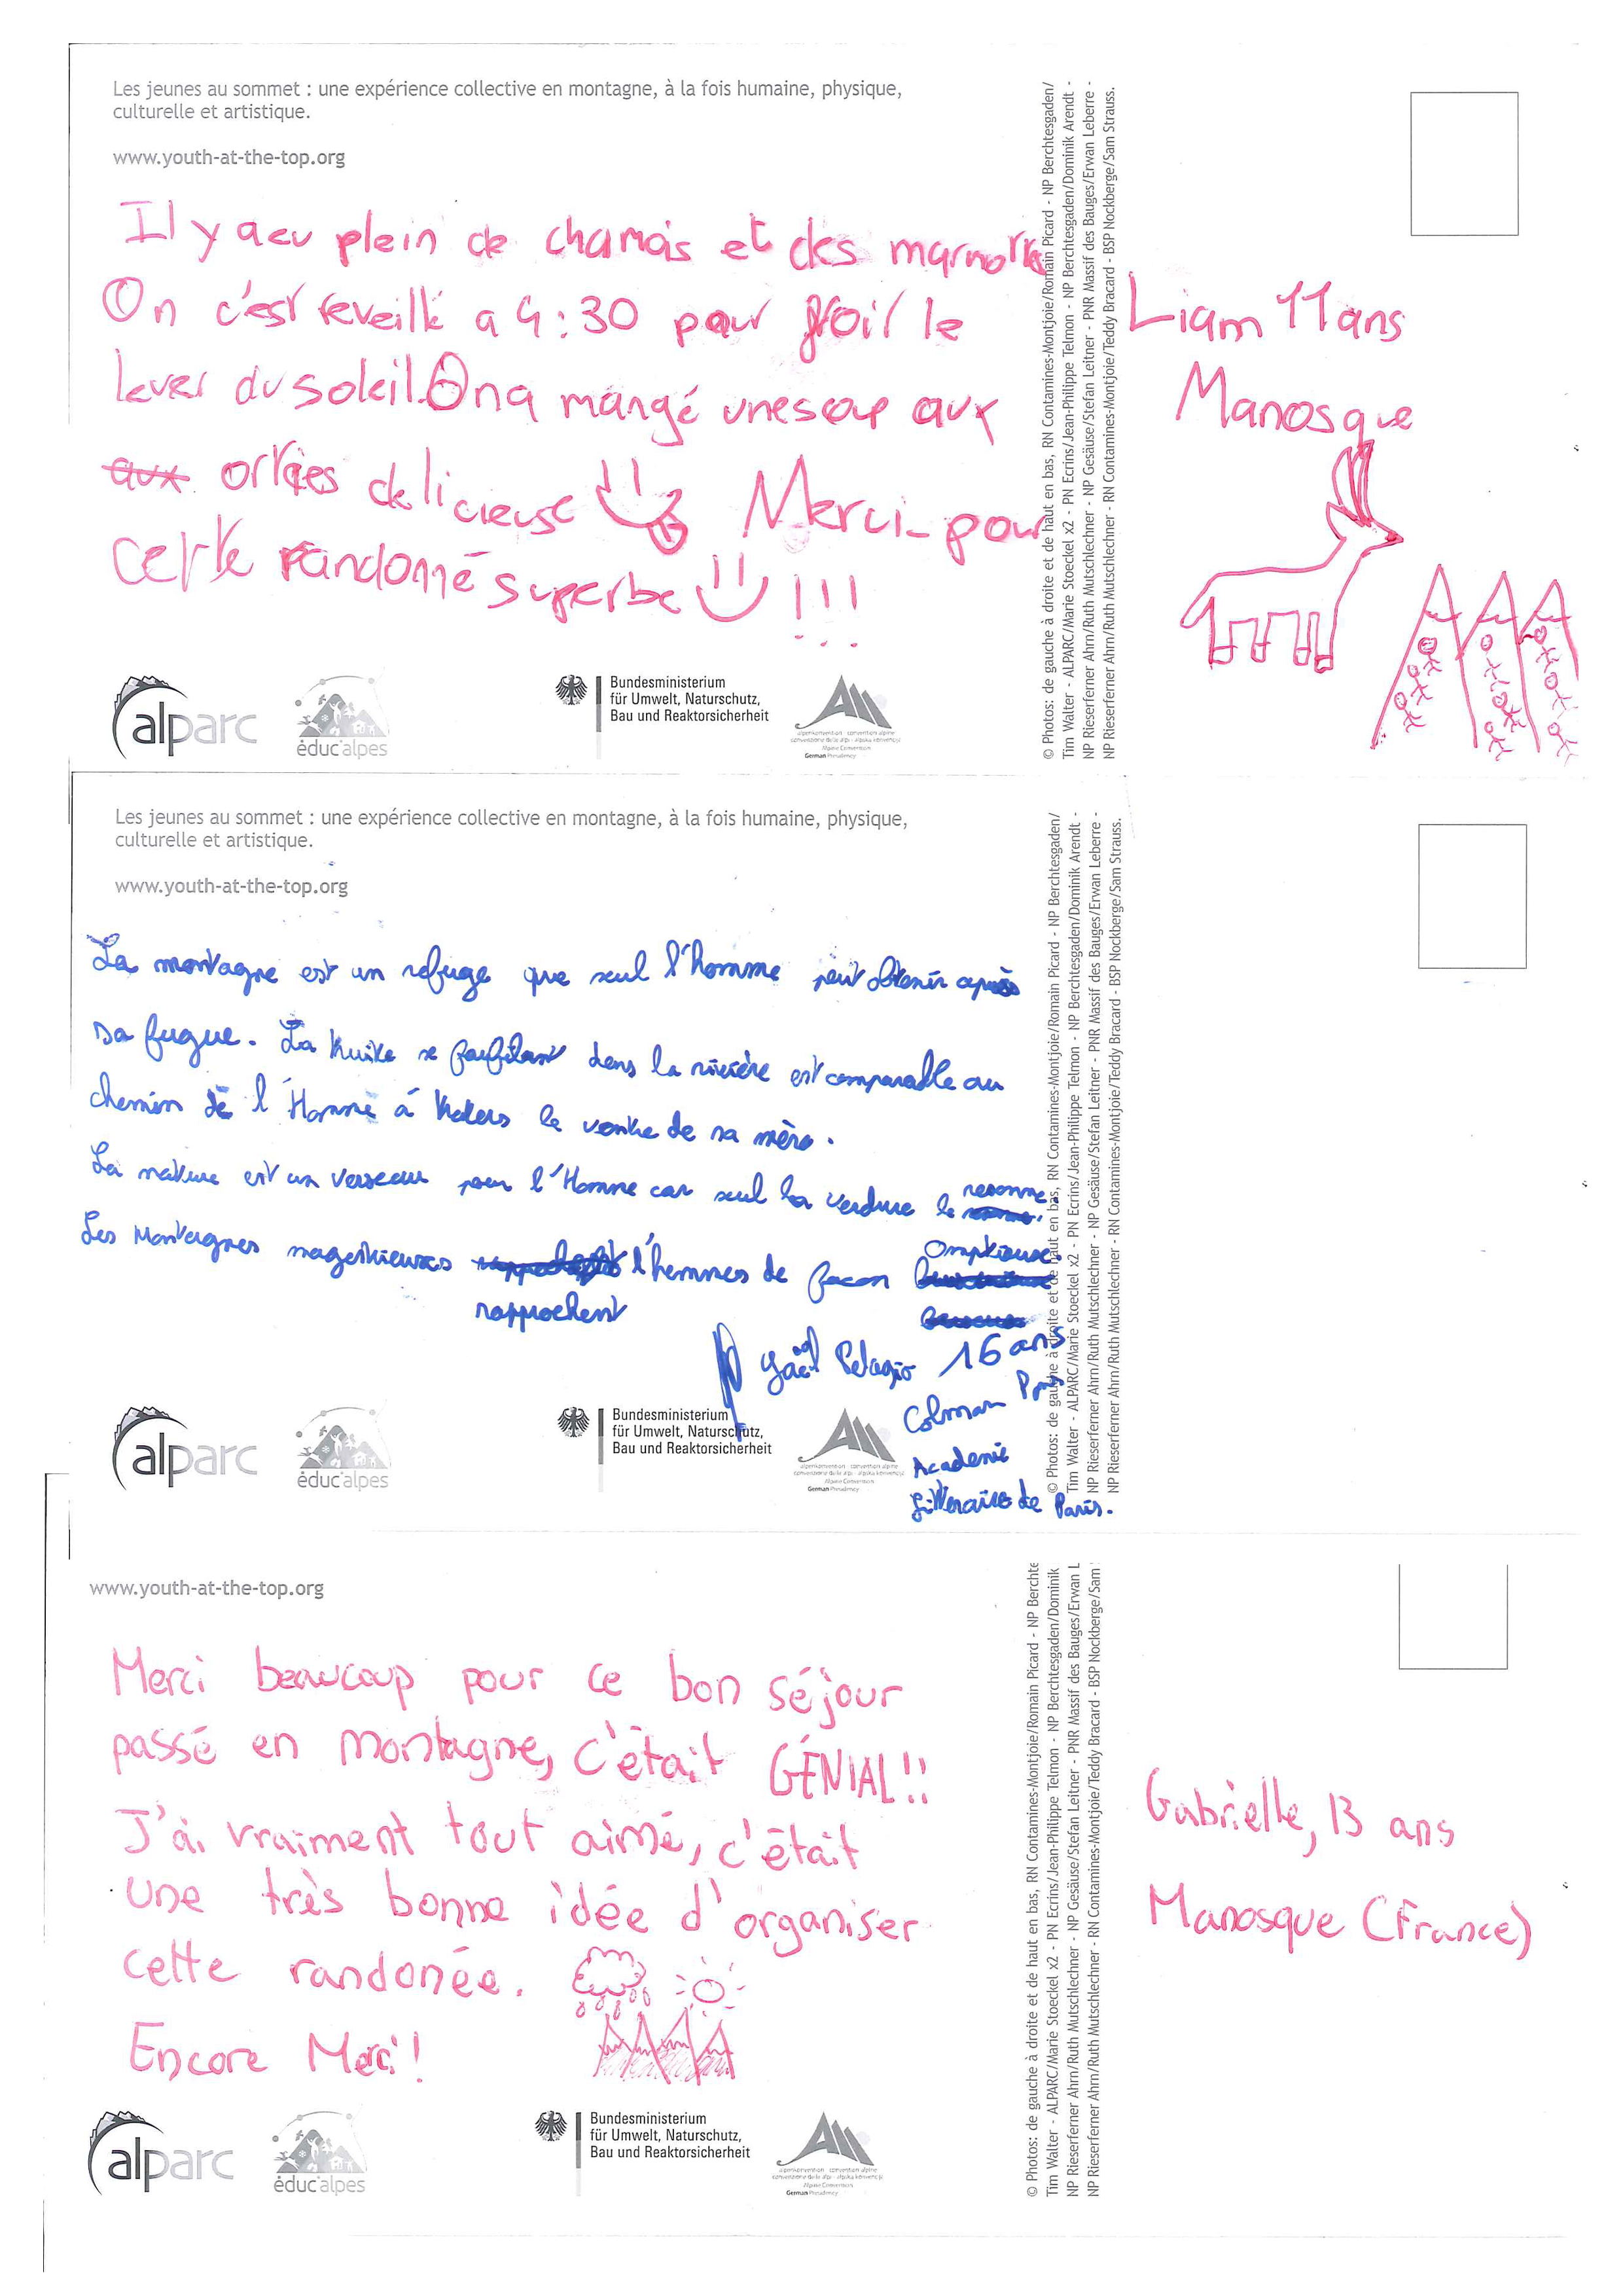 Les jeunes au sommet : une expérience collective en montagne, à la fois humaine, physique,
culturelle et artistique.
www.youth-at-the-top.org
Il y a eu plein de chamois et des marmottes
On c'est reveillé a 4:30 pour voir le
lever du soleil. On a mangé une soup aux
aux orties delicieuse
Merci pour
cette randonné superbe !!!
alparc
éduc'alpes
Bundesministerium
für Umwelt, Naturschutz,
Bau und Reaktorsicherheit
German Presidency
© Photos: de gauche à droite et de haut en bas, RN Contamines-Montjoie/Romain Picard - NP Berchtesgaden/
Tim Walter - ALPARC/Marie Stoeckel x2 - PN Ecrins/Jean-Philippe Telmon - NP Berchtesgaden/Dominik Arendt -
NP Rieserferner Ahrn/Ruth Mutschlechner - NP Gesäuse/Stefan Leitner - PNR Massif des Bauges/Erwan Leberre -
NP Rieserferner Ahrn/Ruth Mutschlechner - RN Contamines-Montjoie/Teddy Bracard - BSP Nockberge/Sam Strauss.
Liam 11 ans
Manosque
Les jeunes au sommet : une expérience collective en montagne, à la fois humaine, physique,
culturelle et artistique.
www.youth-at-the-top.org
La montagne est un refuge que seul l'homme peut obtenir après
sa fugue. La truite se faufilant dans la rivière est comparable au
chemin de l'Homme à travers le ventre de sa mère.
La nature est un verseau pour l'Homme car seul la verdure le resonne.
Les Montagnes magestueuses rapprochent l'hommes de facon
Gaël Pelagio 16 ans
Colman
Academie
Littéraire de Paris.
alparc
éduc'alpes
Bundesministerium
für Umwelt, Naturschutz,
Bau und Reaktorsicherheit
German Presidency
© Photos: de gauche à droite et de haut en bas, RN Contamines-Montjoie/Romain Picard - NP Berchtesgaden/
Tim Walter - ALPARC/Marie Stoeckel x2 - PN Ecrins/Jean-Philippe Telmon - NP Berchtesgaden/Dominik Arendt -
NP Rieserferner Ahrn/Ruth Mutschlechner - NP Gesäuse/Stefan Leitner - PNR Massif des Bauges/Erwan Leberre -
NP Rieserferner Ahrn/Ruth Mutschlechner - RN Contamines-Montjoie/Teddy Bracard - BSP Nockberge/Sam Strauss.
www.youth-at-the-top.org
Merci beaucoup pour ce bon séjour
passé en montagne, c'était GÉNIAL!!
J'ai vraiment tout aimé, c'était
une très bonne idée d'organiser
cette randonée.
Encore Merci!
alparc
éduc'alpes
Bundesministerium
für Umwelt, Naturschutz,
Bau und Reaktorsicherheit
German Presidency
© Photos: de gauche à droite et de haut en bas, RN Contamines-Montjoie/Romain Picard - NP Berchte
Tim Walter - ALPARC/Marie Stoeckel x2 - PN Ecrins/Jean-Philippe Telmon - NP Berchtesgaden/Dominik
NP Rieserferner Ahrn/Ruth Mutschlechner - NP Gesäuse/Stefan Leitner - PNR Massif des Bauges/Erwan L
NP Rieserferner Ahrn/Ruth Mutschlechner - RN Contamines-Montjoie/Teddy Bracard - BSP Nockberge/Sam
Gabrielle, 13 ans
Manosque (France)